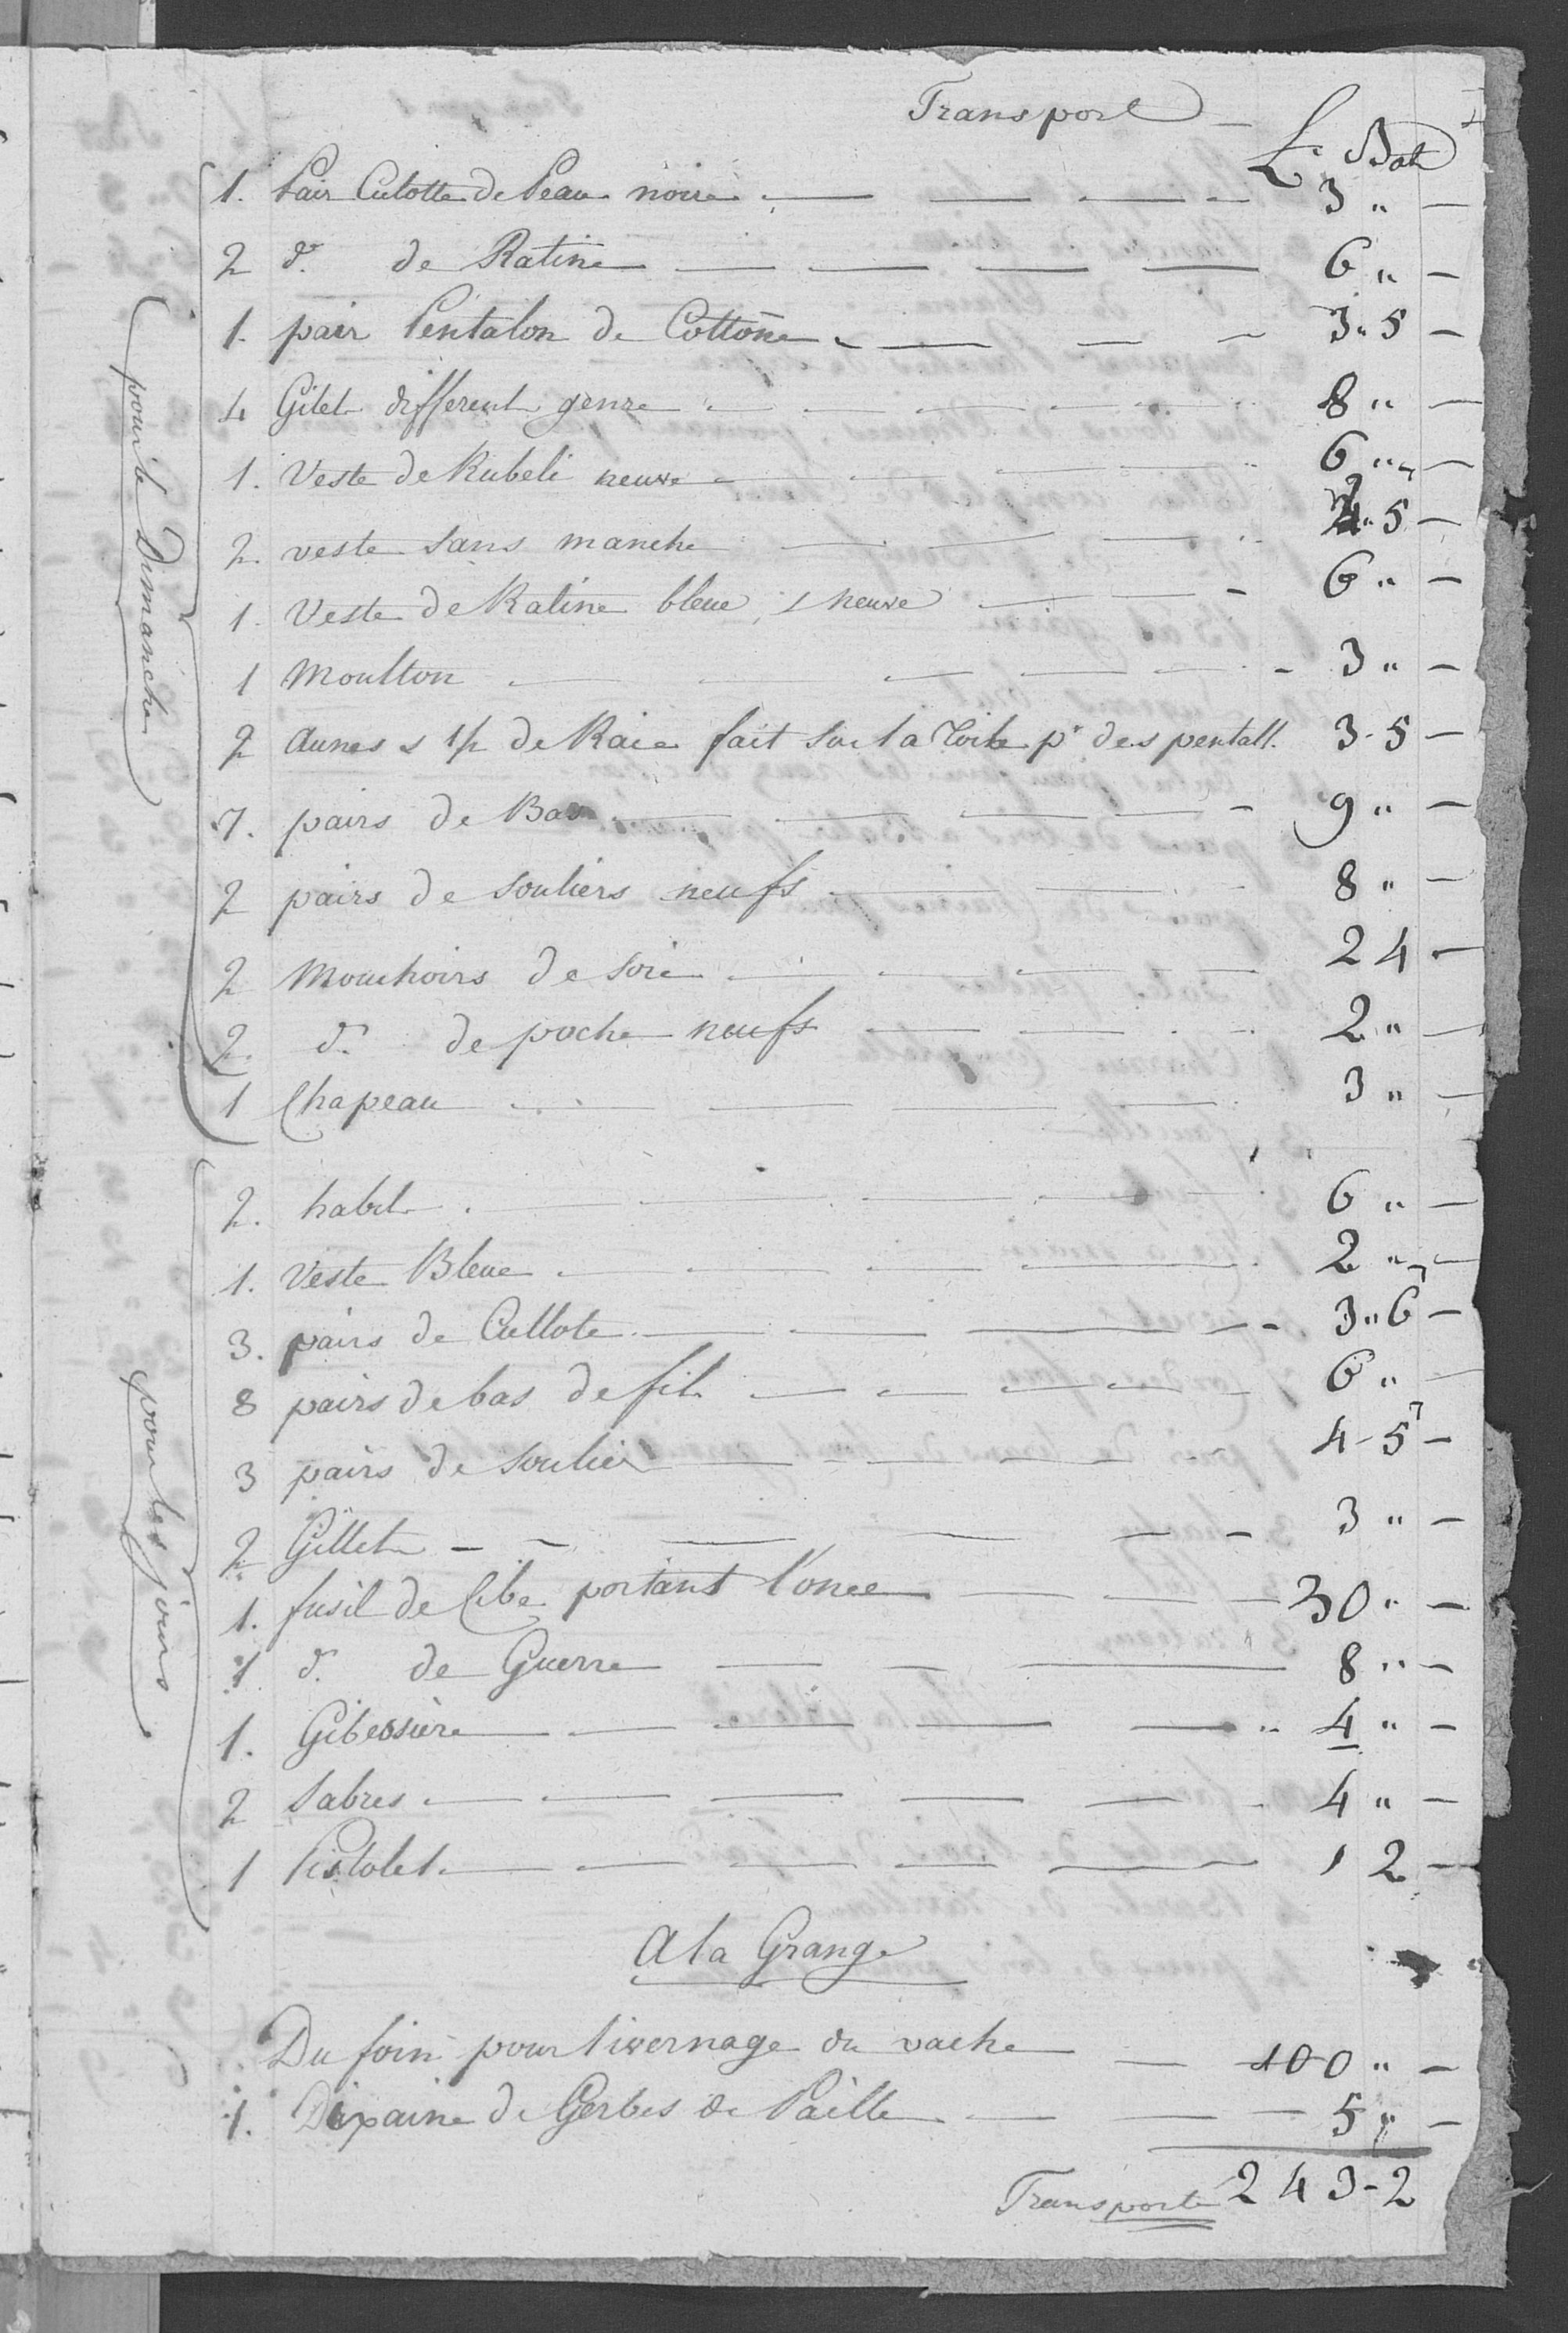 Transport
L. Bat
1. Pair Culotte de Peau noire — 3 " —
2 d.º de Ratine — 6 " —
1. pair Pentalon de Cottone — 3 " 5 —
4 Gilet different genre — 8 " —
1. Veste de Rubeli neuve — 6 " —
2. veste sans manche — " 5 —
1. Veste de Ratine bleue, neuve — 6 " —
1 Moulton — 3 " —
2 Aunes & 1/2 de Raie fait sur la Toile pr des pentall. 3 - 5 —
7. pairs de Bas — 9 " —
2 pairs de souliers neufs — 8 " —
2 Mouchoirs de soie — 2 4 —
2. d.º de poche neufs — 2 " —
1 Chapeau — 3 " —
pour le Dimanche
2. habit — 6 " —
1. Veste Bleue — 2 " —
3. pairs de Cullote — 3 " 6 —
8 pairs de bas de fil — 6 " —
3 pairs de soulier — 4 - 5 —
2 Gillet — 3 " —
1. fusil de Cibe portant l'once — 30 " —
1 d.º de Guerre — 8 " —
1. Gibessière — 4 " —
2 Sabres — 4 " —
1 Pistolet — 1 2 —
pour les jours
A la Grange
Du foin pour livernage du vache — 100 " —
1. Dixaine de Gerbes de Paille — 5 " —
Transporte 243 - 2